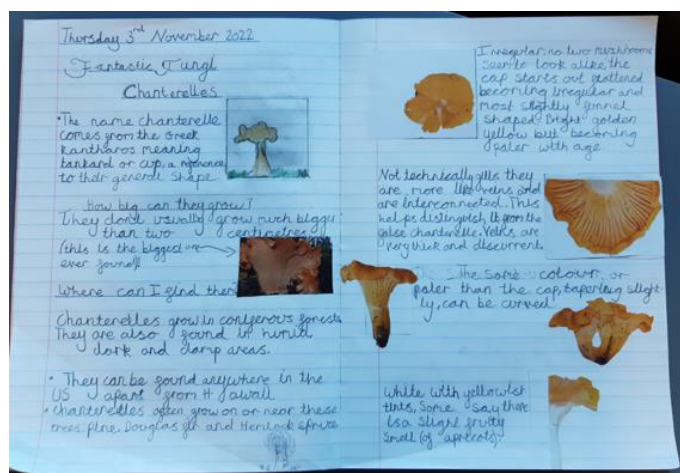 Thursday 3rd November 2022
Fantastic Fungi
Chanterelles
• The name chanterelle
comes from the Greek
kantharos meaning
tankard or cup, a reference
to their general shape
How big can they grow?
They don't usually grow much bigger
than two centimetres
(this is the biggest
ever found)
Where can I find them
Chanterelles grow in coniferous forests
They are also found in humid,
dark and damp areas.
• They can be found anywhere in the
US apart from Hawaii
• Chanterelles often grow on or near these
trees: Pine, Douglas fir and Hemlock spruce
Irregular: no two mushrooms
seem to look alike, the
cap starts out flattened
becoming irregular and
most slightly funnel
shaped. Bright golden
yellow but becoming
paler with age
Not technically gills they
are more like veins and
are interconnected. This
helps distinguish it from the
false chanterelle. Veins are
very thick and discurrent.
The same colour, or
paler than the cap, tapering slight-
ly, can be curved
White with yellowish
tints, Some say there
is a slight fruity
smell (of apricots).